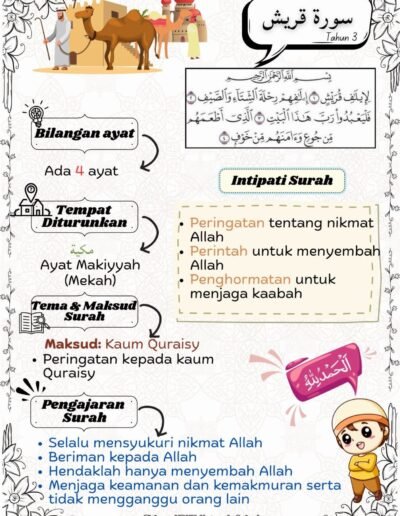 سورة قريش
Tahun 3
بِسْمِ اللَّهِ الرَّحْمَٰنِ الرَّحِيمِ
لِإِيلَٰفِ قُرَيْشٍ ١ إِۦلَٰفِهِمْ رِحْلَةَ الشِّتَآءِ وَالصَّيْفِ ٢
فَلْيَعْبُدُوا۟ رَبَّ هَٰذَا الْبَيْتِ ٣ الَّذِىٓ أَطْعَمَهُم
مِّن جُوعٍ وَءَامَنَهُم مِّنْ خَوْفٍۭ ٤
Bilangan ayat
Ada 4 ayat
Intipati Surah
Peringatan tentang nikmat
Allah
Perintah untuk menyembah
Allah
Penghormatan untuk
menjaga kaabah
Tempat
Diturunkan
مكية
Ayat Makiyyah
(Mekah)
Tema & Maksud
Surah
Maksud: Kaum Quraisy
Peringatan kepada kaum
Quraisy
الحمد لله
Pengajaran
Surah
Selalu mensyukuri nikmat Allah
Beriman kepada Allah
Hendaklah hanya menyembah Allah
Menjaga keamanan dan kemakmuran serta
tidak mengganggu orang lain